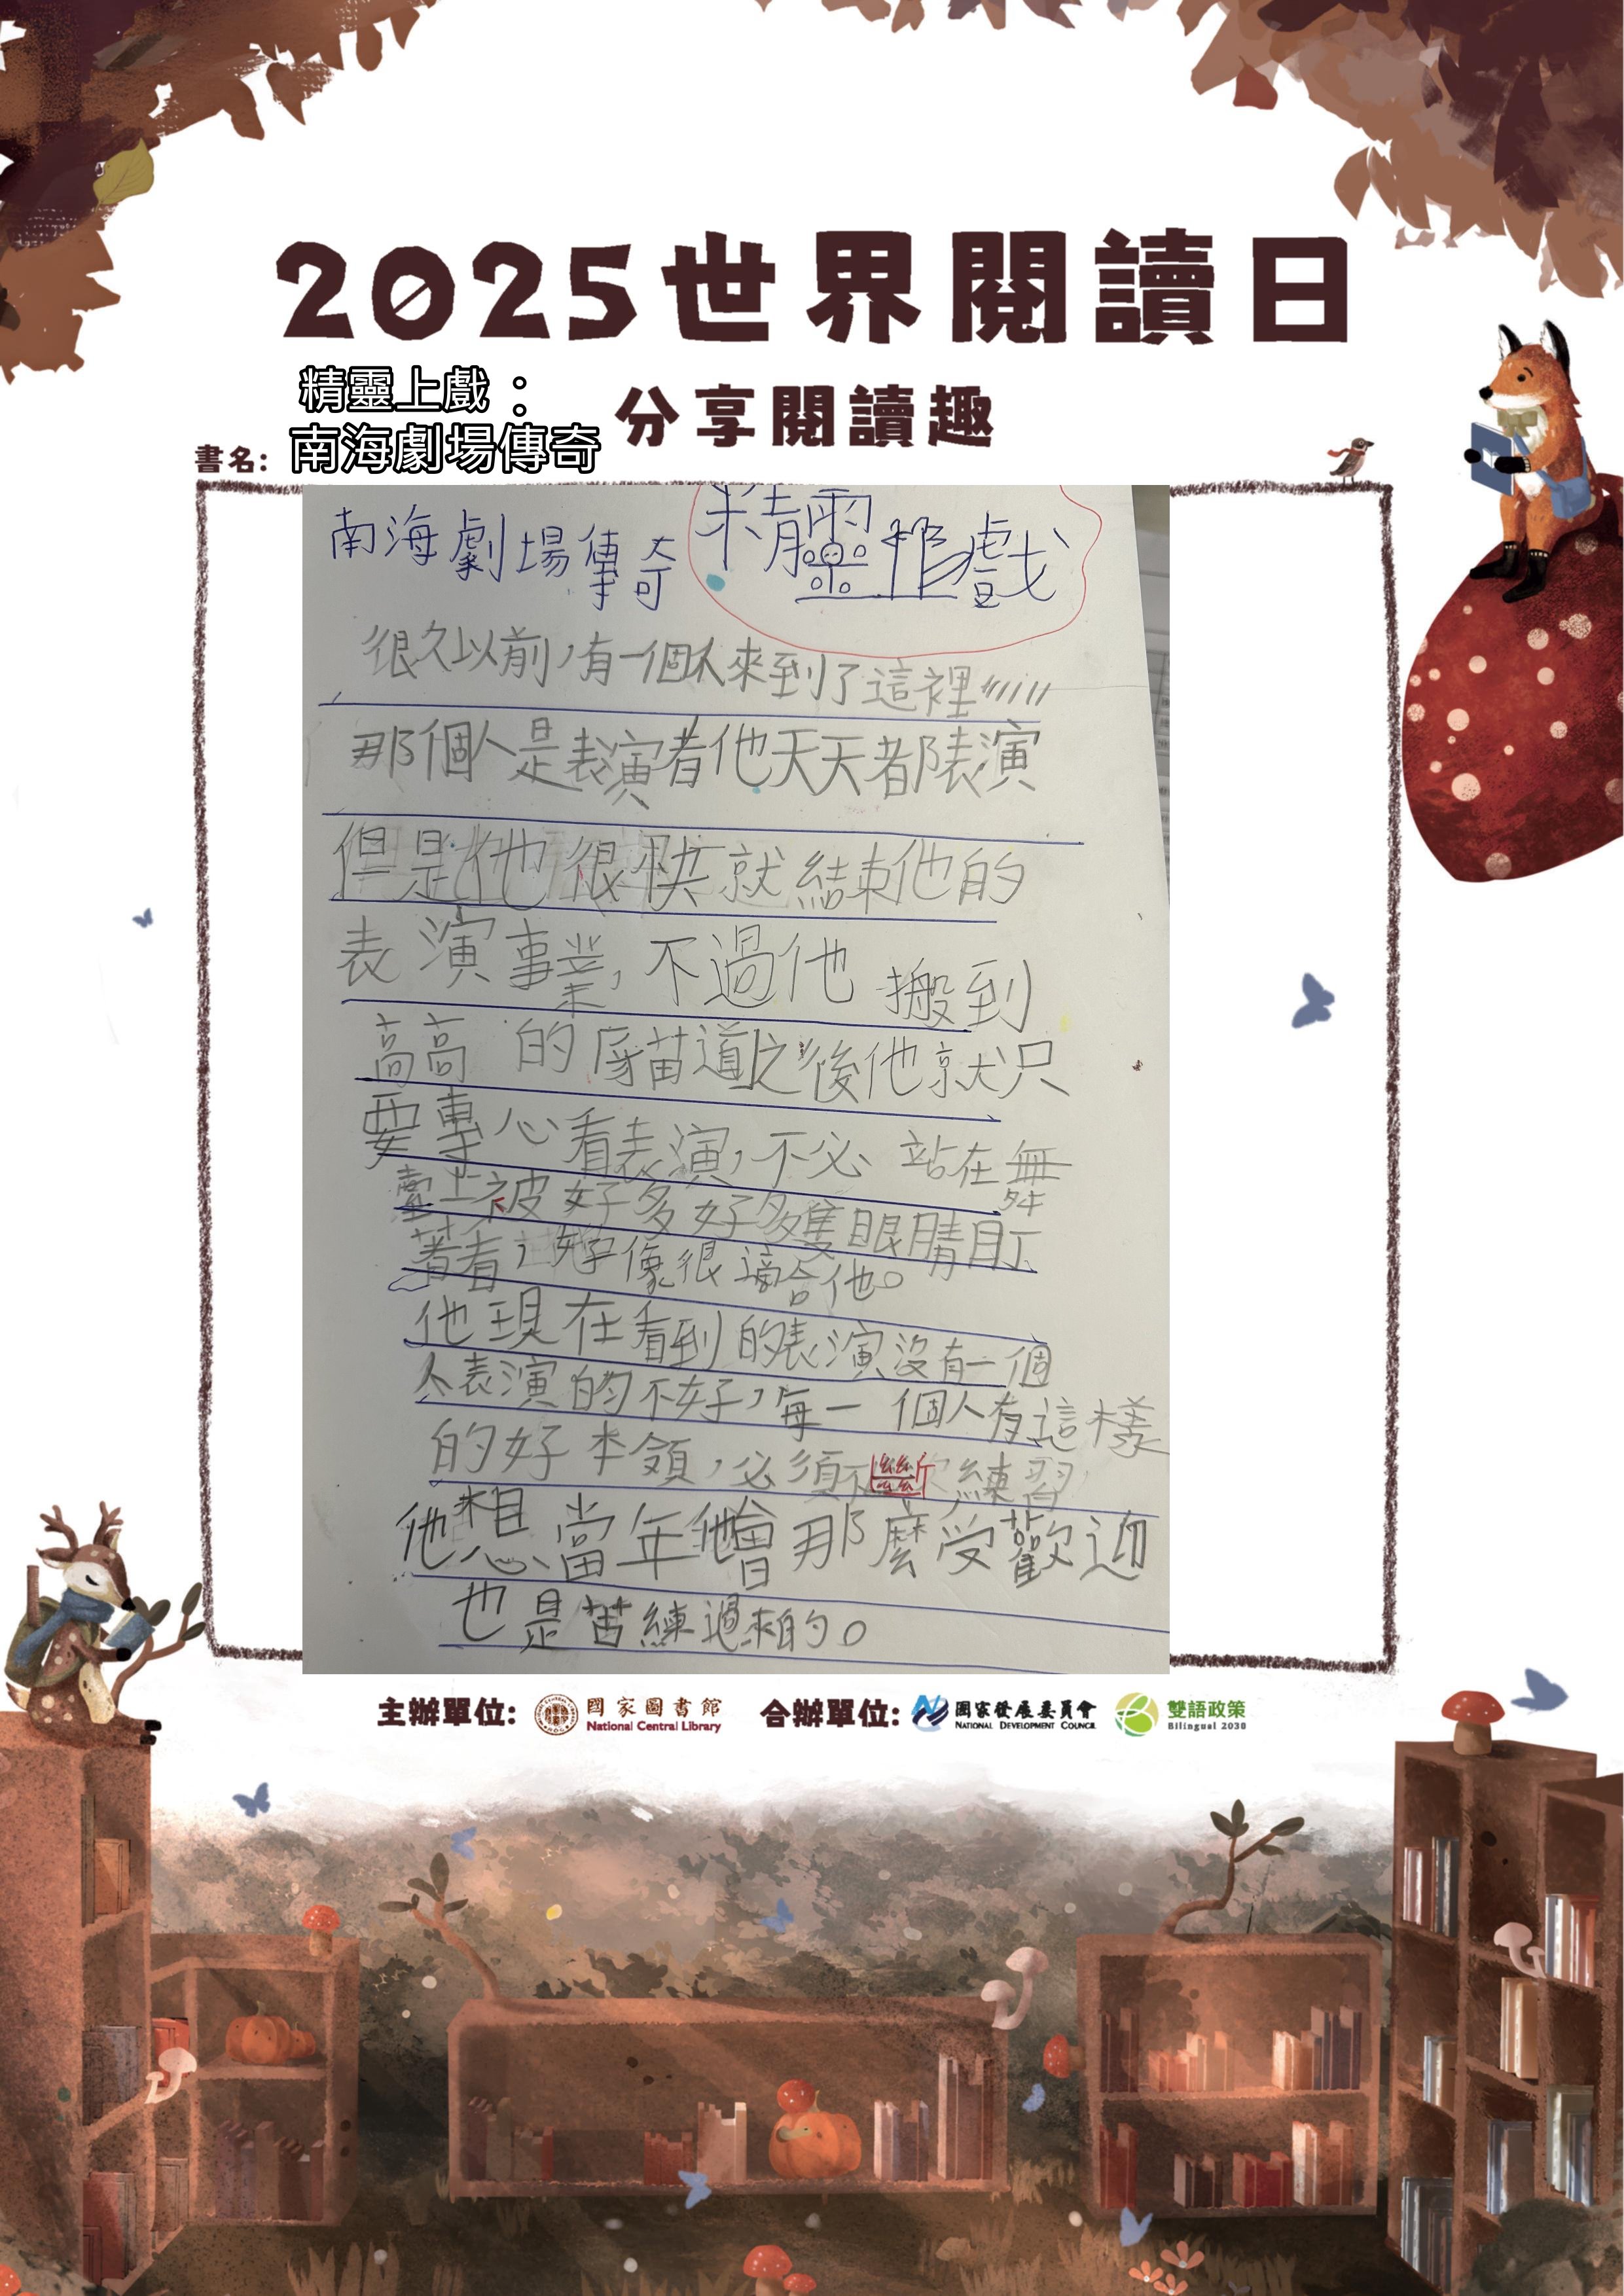 2025世界閱讀日
精靈上戲：
分享閱讀趣
書名: 南海劇場傳奇
南海劇場傳奇 精靈 戲
很久以前,有一個人來到了這裡
那個人是表演者他天天都表演
但是他很快就結束他的
表演事業,不過他搬到
高高的貓道之後他就只
要專心看表演,不必站在舞
臺上被好多好多隻眼睛盯
著看,好像很適合他。
他現在看到的表演沒有一個
人表演的不好,每一個人有這樣
的好本領,必須不斷 練習
他想當年他會那麼受歡迎
也是苦練過來的。
主辦單位: 國家圖書館 National Central Library 合辦單位: 國家發展委員會 NATIONAL DEVELOPMENT COUNCIL 雙語政策 Bilingual 2030